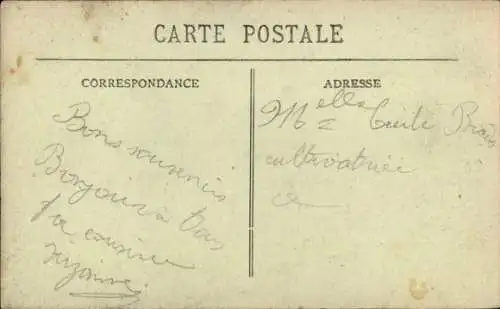 CARTE POSTALE
CORRESPONDANCE
Bons souvenirs
Bonjour à tous
ta cousine
ADRESSE
Melle Cecile
cultivatrice